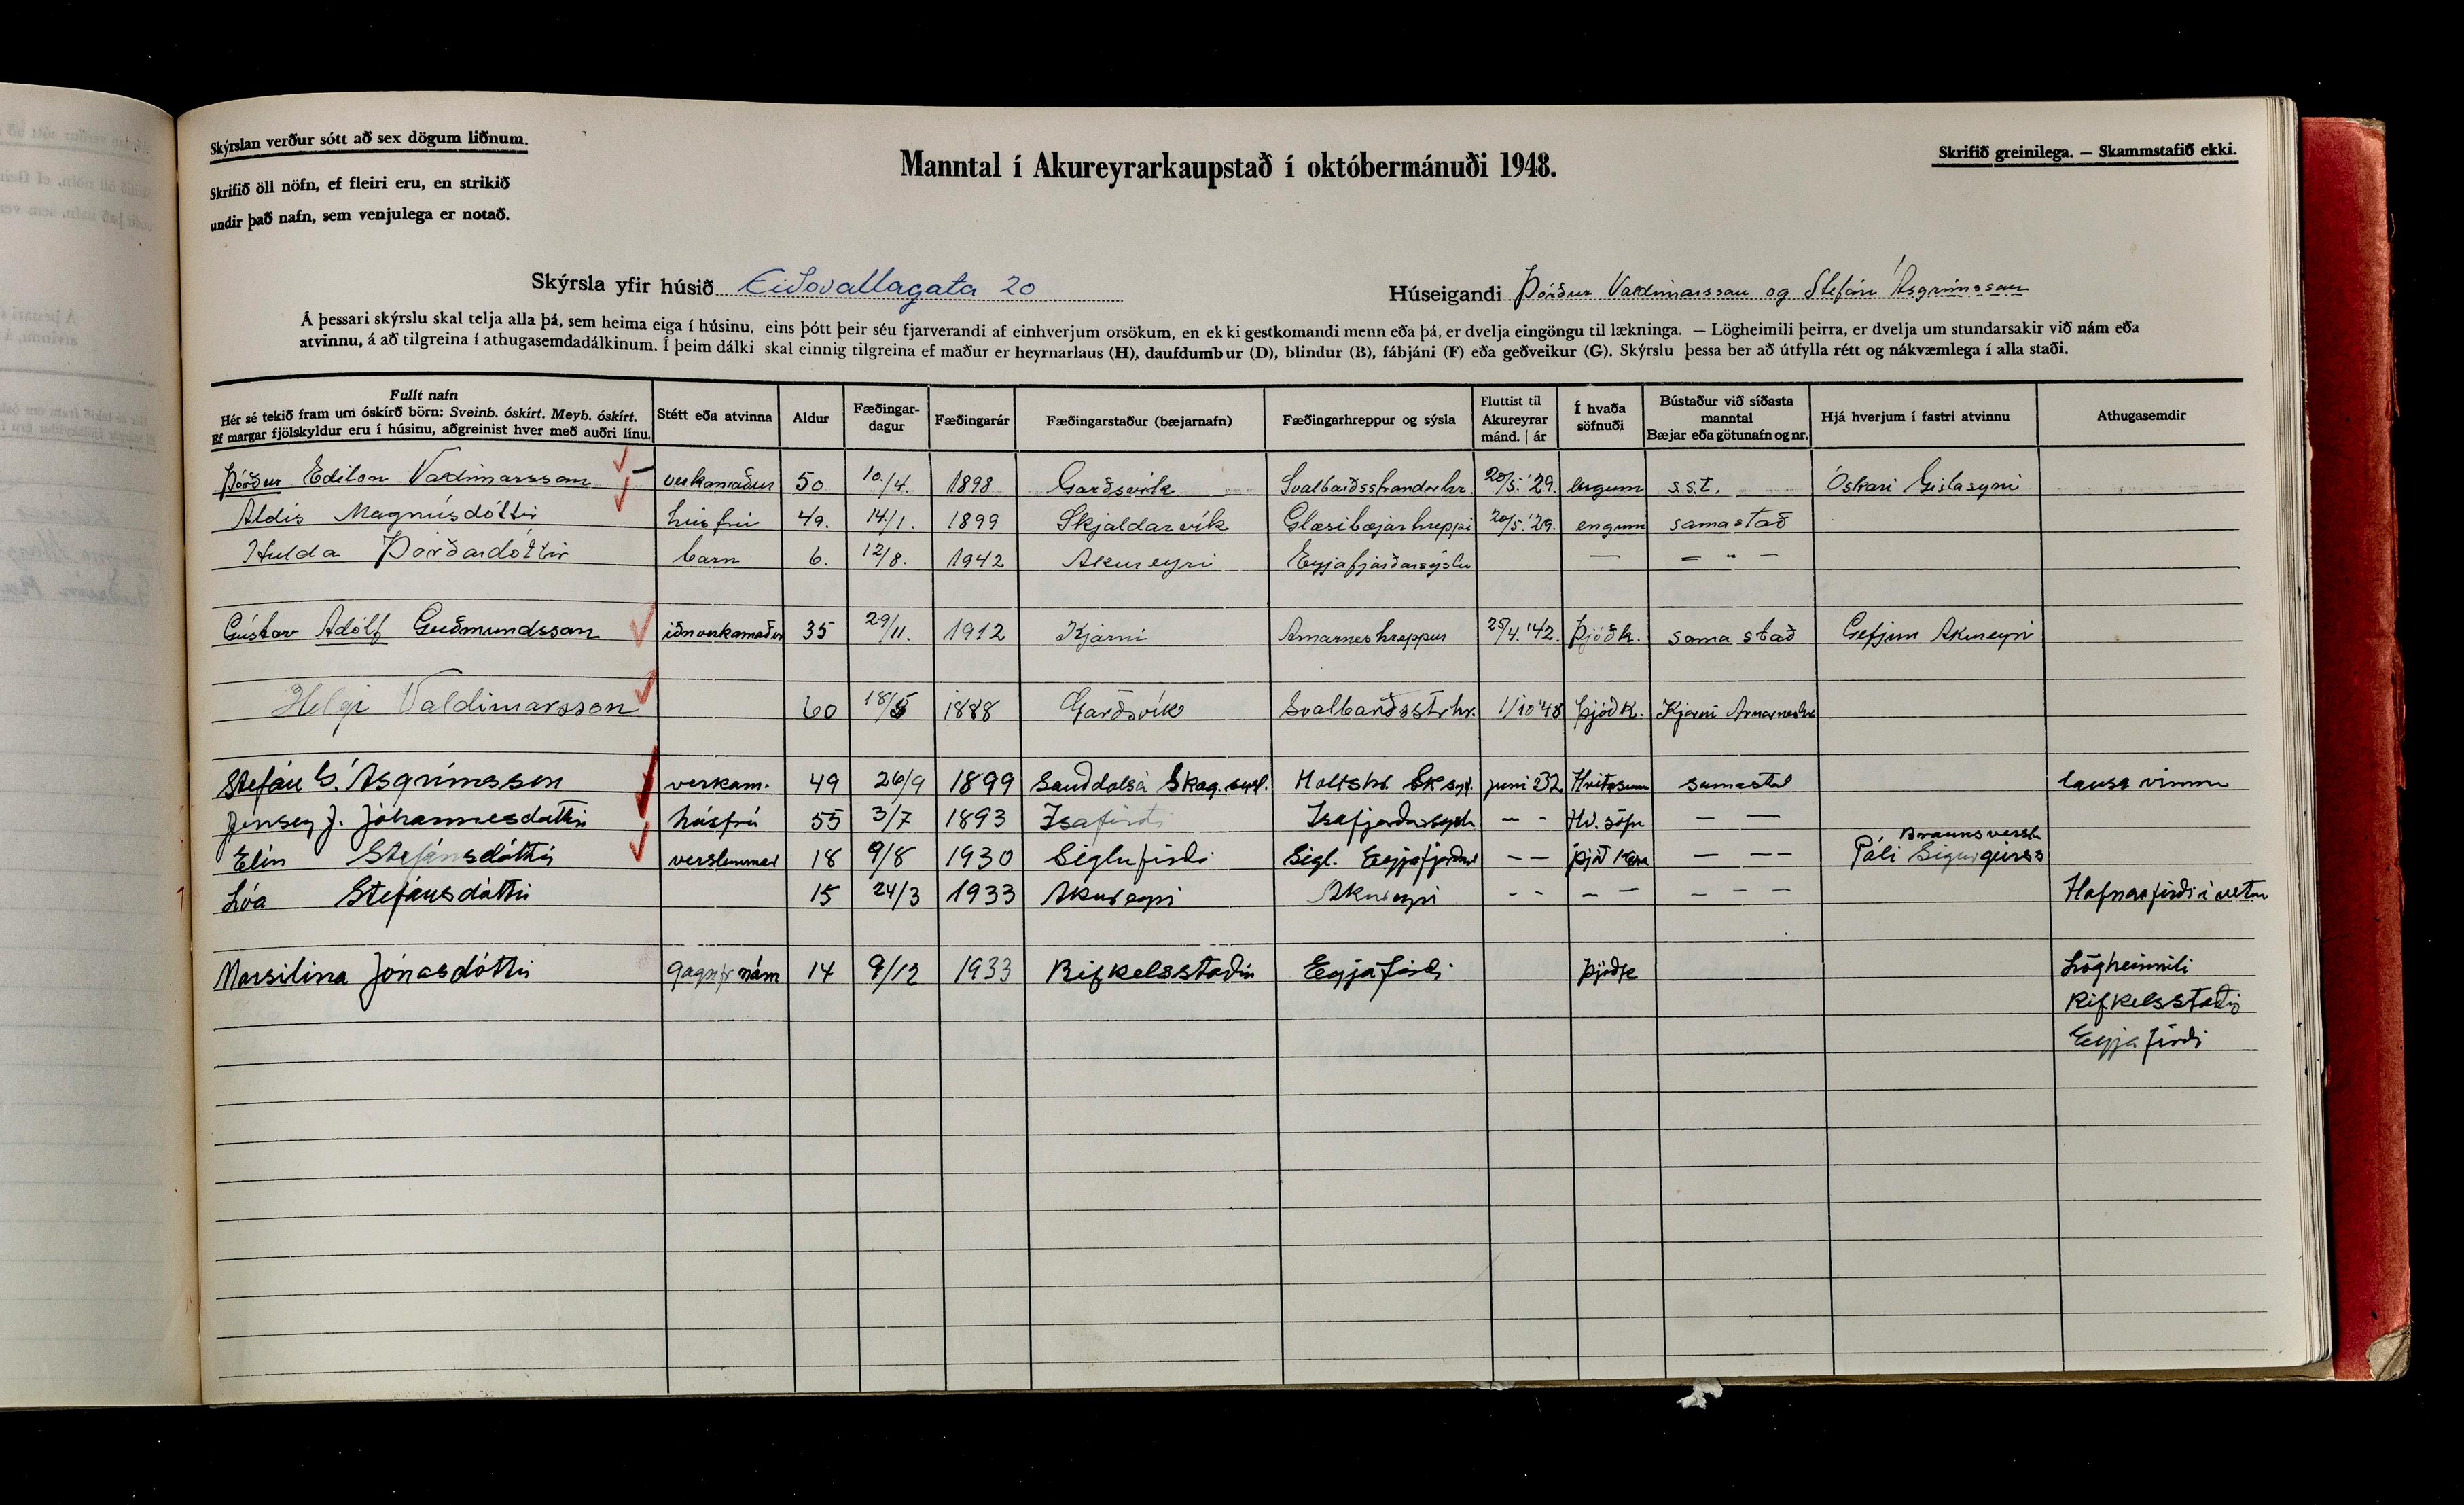 Skýrslan verður sótt að sex dögum liðnum.
Skrifið öll nöfn, ef fleiri eru, en strikið
undir það nafn, sem venjulega er notað.
Manntal í Akureyrarkaupstað í októbermánuði 1948.
Skrifið greinilega. — Skammstafið ekki.
Skýrsla yfir húsið Eiðsvallagata 20
Húseigandi Þórður Valdimarsson og Stefán Ásgrímsson
Á þessari skýrslu skal telja alla þá, sem heima eiga í húsinu, eins þótt þeir séu fjarverandi af einhverjum orsökum, en ekki gestkomandi menn eða þá, er dvelja eingöngu til lækninga. — Lögheimili þeirra, er dvelja um stundarsakir við nám eða
atvinnu, á að tilgreina í athugasemdadálkinum. Í þeim dálki skal einnig tilgreina ef maður er heyrnarlaus (H), daufdumbur (D), blindur (B), fábjáni (F) eða geðveikur (G). Skýrslu þessa ber að útfylla rétt og nákvæmlega í alla staði.
Fullt nafn
Hér sé tekið fram um óskírð börn: Sveinb. óskírt. Meyb. óskírt.
Ef margar fjölskyldur eru í húsinu, aðgreinist hver með auðri línu.
Stétt eða atvinna
Aldur
Fæðingar-
dagur
Fæðingarár
Fæðingarstaður (bæjarnafn)
Fæðingarhreppur og sýsla
Fluttist til
Akureyrar
mánd. | ár
Í hvaða
söfnuði
Bústaður við síðasta
manntal
Bæjar eða götunafn og nr.
Hjá hverjum í fastri atvinnu
Athugasemdir
Þórður Edilon Valdimarsson verkamaður 50 10./4. 1898 Garðsvík Svalbarðsstrandarhr. 20/5.'29. engum s.s.t. Óskari Gíslasyni
Aldís Magnúsdóttir húsfrú 49. 14./1. 1899 Skjaldarvík Glæsibæjarhreppi 20/5.'29. engum sama stað
Hulda Þórðardóttir barn 6. 12/8. 1942 Akureyri Eyjafjarðarsýslu — — " —
Gústav Adólf Guðmundsson iðnverkamaður 35 29/11. 1912 Kjarni Arnarneshreppur 25/4.'42. Þjóðk. sama stað Gefjun Akureyri
Helgi Valdimarsson 60 18/5 1888 Garðsvík Svalbarðsstrhr. 1/10'48 Þjóðk. Kjarni Arnarneshr
Stefán G. Ásgrímsson verkam. 49 26/9 1899 Sauddalsá Skag.sysl. Holtshr. Sk.sysl. juni 32 Hvitasunn samastað lausa vinnu
Jensey J. Jóhannesdóttir húsfrú 55 3/7 1893 Isafirði Isafjarðarsysl. — - Hv. söfn — —
Elín Stefánsdóttir 18 9/8 1930 Siglufirði Sigl. Eyjafjarðar — — þjóð kirk — — —
Braunsversl.
Páli Sigurgeirss
Lóa Stefánsdóttir 15 24/3 1933 Akureyri Akureyri - - — — — — — Hafnarfirði í vetur
Marsilina Jónasdóttir gagnfr nám 14 9/12 1933 Rifkelsstaðir Eyjafirði Þjóðk Lögheimili
Rifkelsstaðir
Eyjafirði